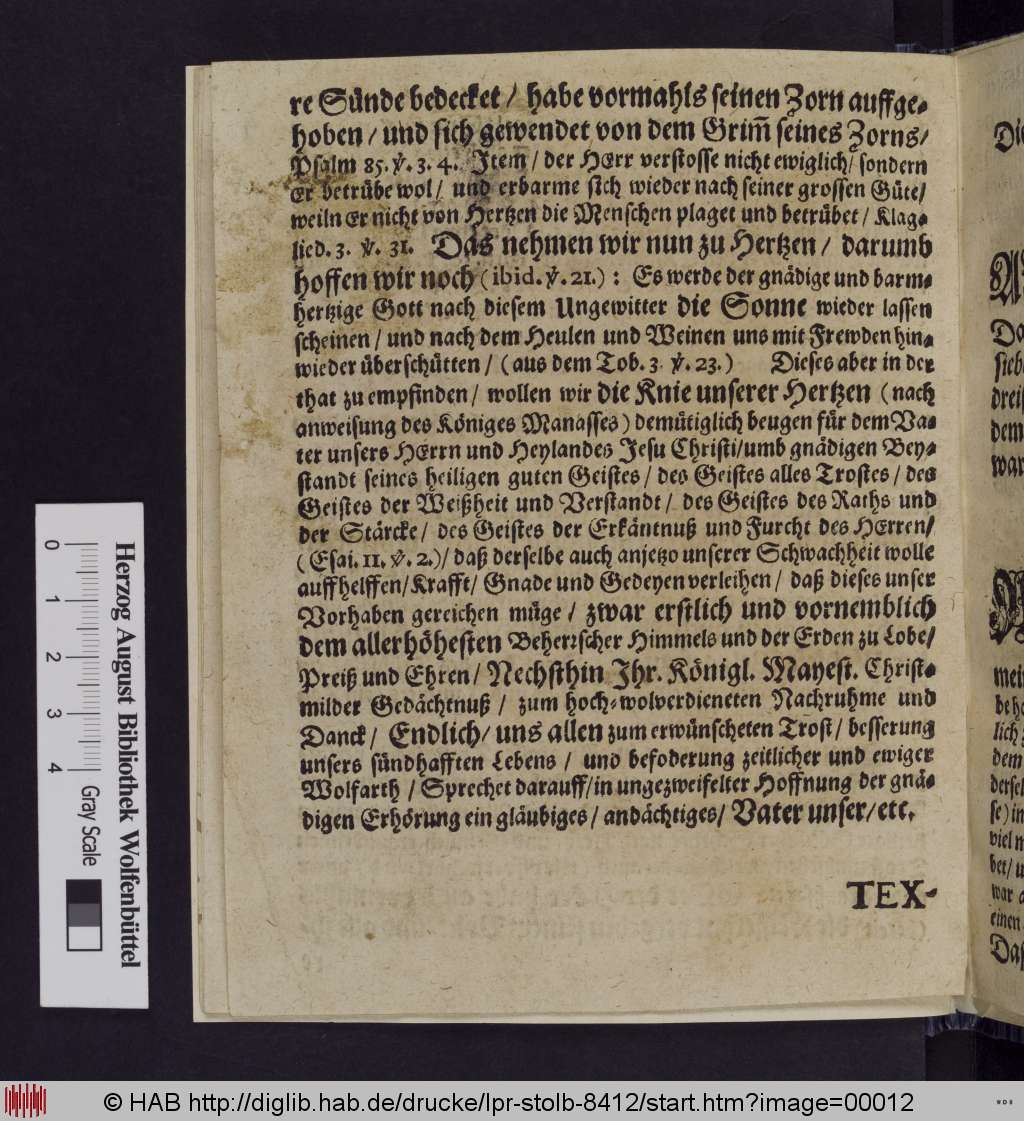 re Sünde bedecket / habe vormahls seinen Zorn auffge-
hoben / und sich gewendet von dem Grim̃ seines Zorns /
Psalm 85. ꝟ. 3. 4. Item / der HErr verstosse nicht ewiglich / sondern
Er betrübe wol / und erbarme sich wieder nach seiner grossen Güte /
weiln Er nicht von Hertzen die Menschen plaget und betrübet / Klag-
lied. 3. ꝟ. 31. Das nehmen wir nun zu Hertzen / darumb
hoffen wir noch (ibid. ꝟ. 21.) : Es werde der gnädige und barm-
hertzige Gott nach diesem Ungewitter die Sonne wieder lassen
scheinen / und nach dem Heulen und Weinen uns mit Frewden hin-
wieder überschütten / (aus dem Tob. 3 ꝟ. 23.) Dieses aber in der
that zu empfinden / wollen wir die Knie unserer Hertzen (nach
anweisung des Königes Manasses) demütiglich beugen für dem Va-
ter unsers HErrn und Heylandes Jesu Christi / umb gnädigen Bey-
standt seines heiligen guten Geistes / des Geistes alles Trostes / des
Geistes der Weißheit und Verstandt / des Geistes des Raths und
der Stärcke / des Geistes der Erkäntnuß und Furcht des HErren /
(Esai. 11. ꝟ. 2.) / daß derselbe auch anjetzo unserer Schwachheit wolle
auffhelffen / Krafft / Gnade und Gedeyen verleihen / daß dieses unser
Vorhaben gereichen müge / zwar erstlich und vornemblich
dem allerhöhesten Beherꝛscher Himmels und der Erden zu Lobe /
Preiß und Ehren / Nechsthin Ihr. Königl. Mayest. Christ-
milder Gedächtnuß / zum hoch-wolverdieneten Nachruhme und
Danck / Endlich / uns allen zum erwünscheten Trost / besserung
unsers sündhafften Lebens / und befoderung zeitlicher und ewiger
Wolfarth / Sprechet darauff / in ungezweifelter Hoffnung der gnä-
digen Erhörung ein gläubiges / andächtiges / Vater unser / etc.
TEX-
Herzog August Bibliothek Wolfenbüttel
0 1 2 3 4
Gray Scale
© HAB http://diglib.hab.de/drucke/lpr-stolb-8412/start.htm?image=00012